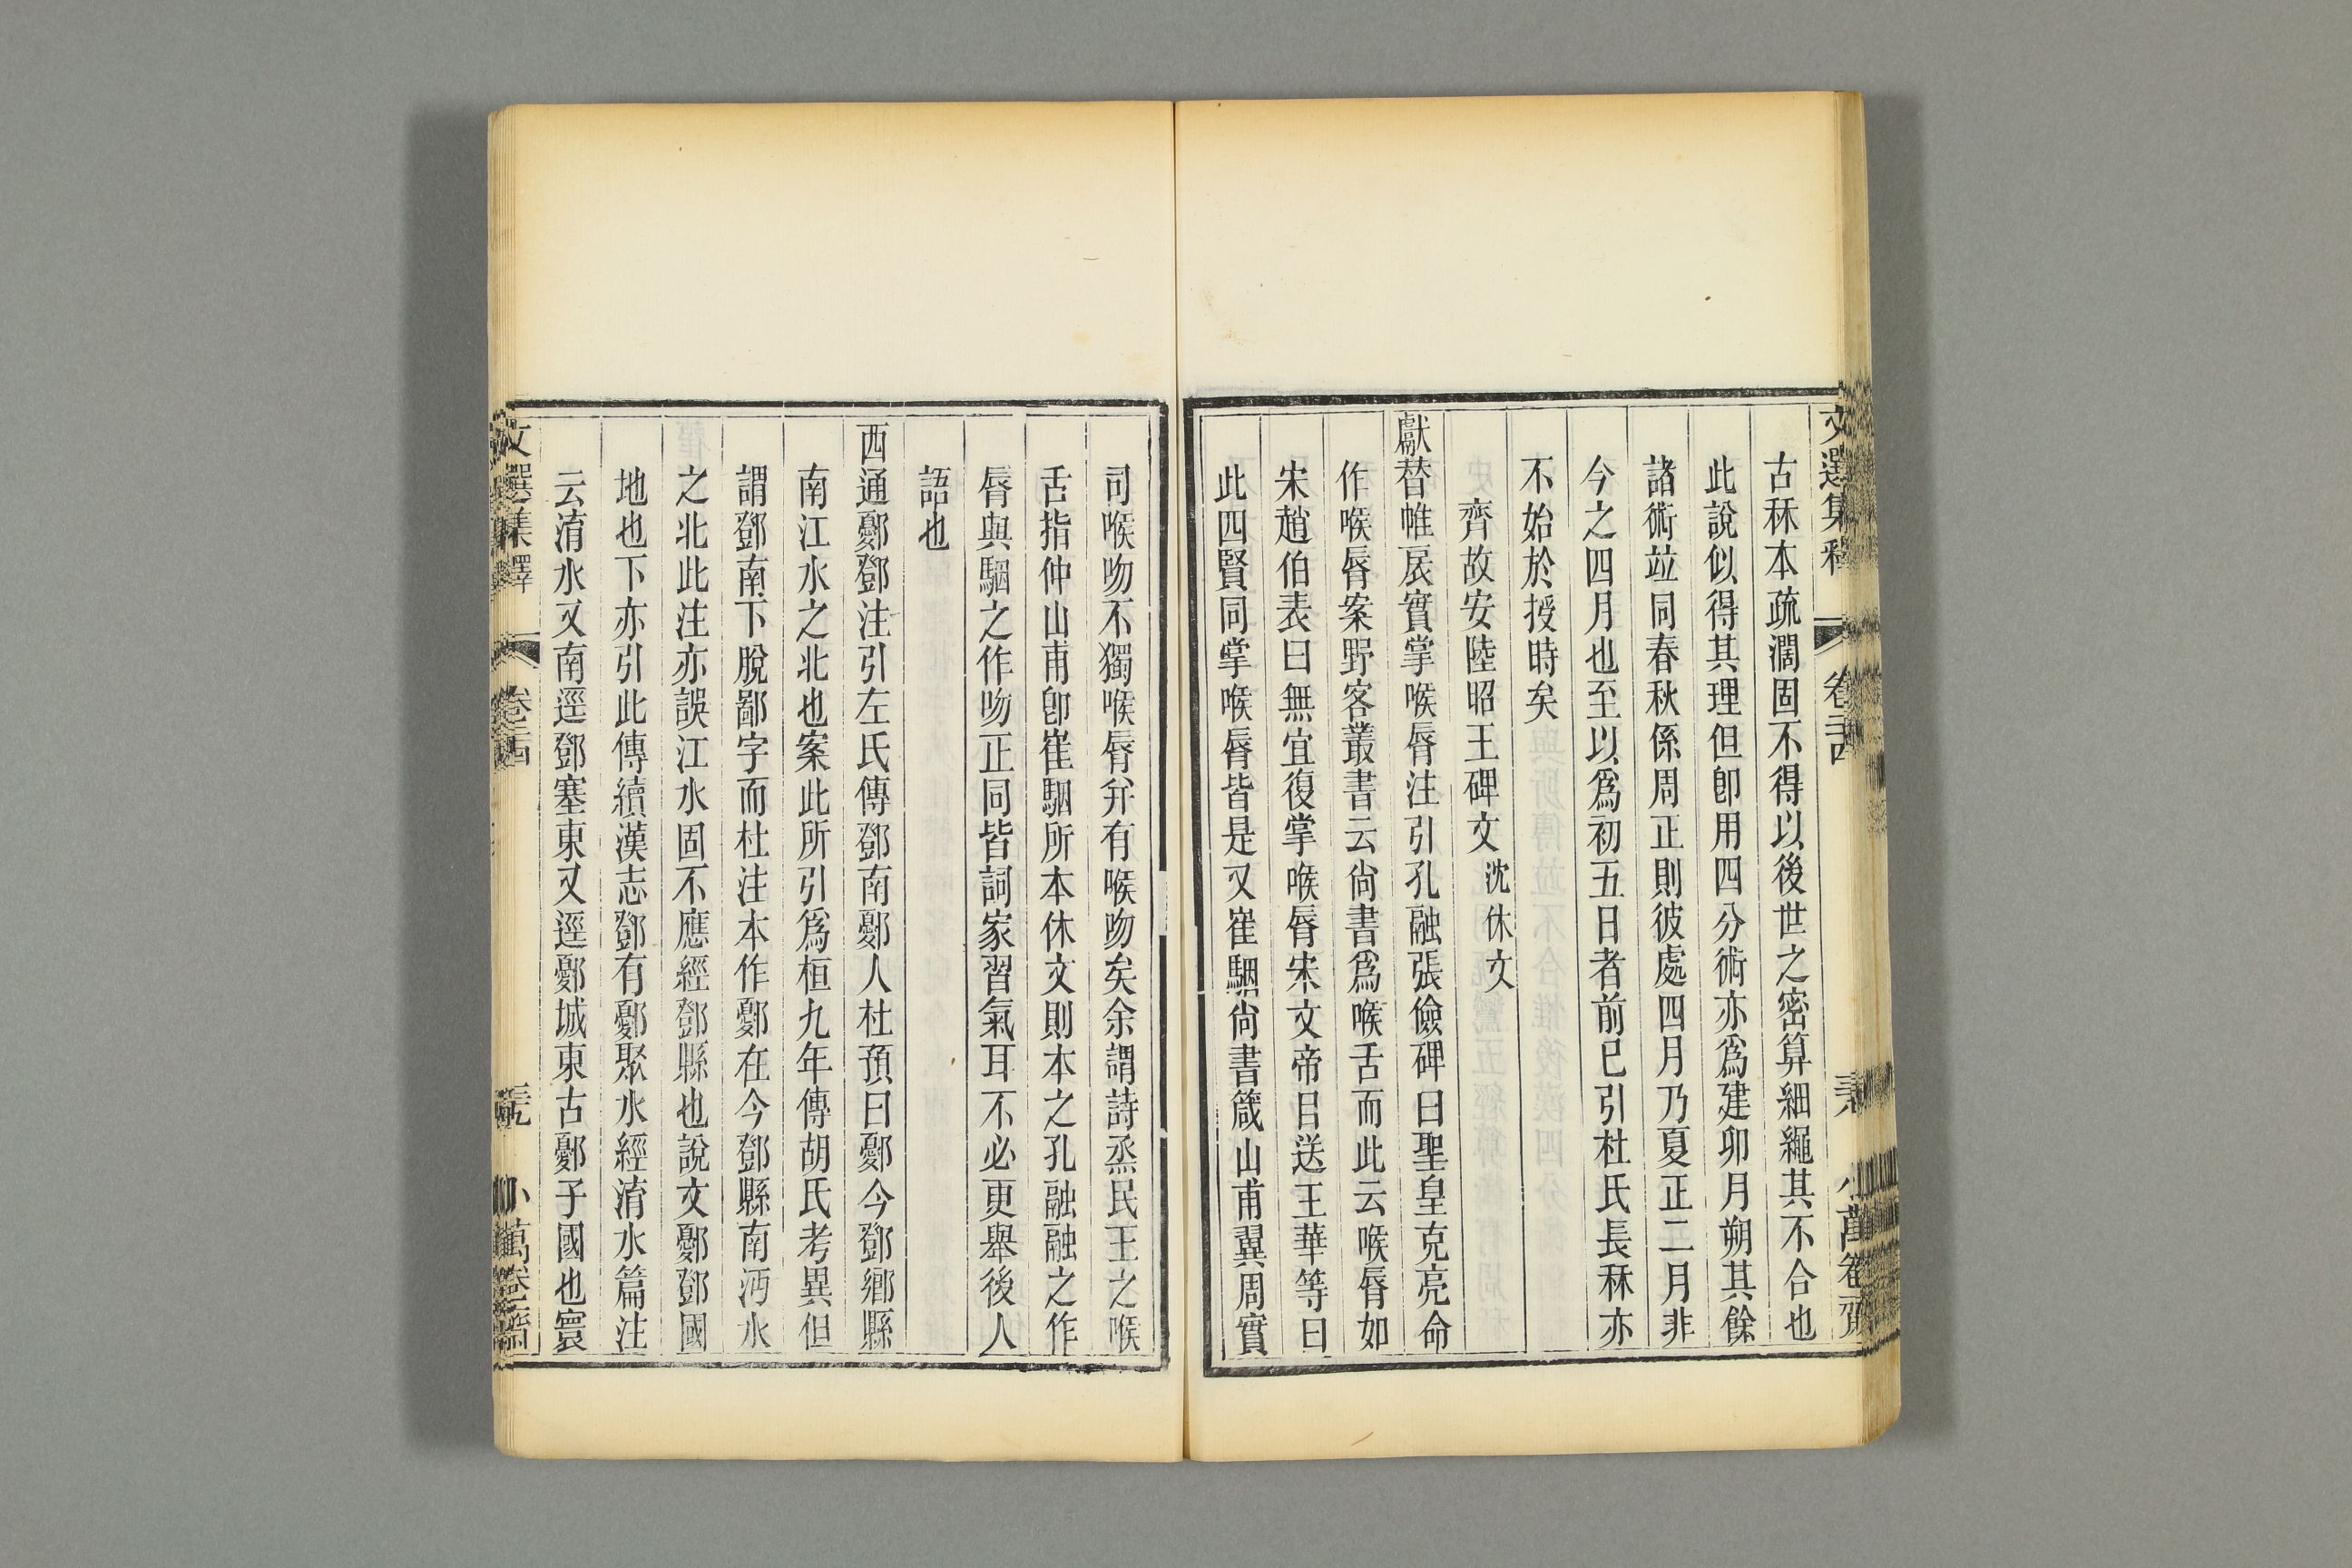 文選集釋 卷二十四 小萬卷齋
古秝本疏濶固不得以後世之密算細繩其不合也
此說似得其理但卽用四分術亦爲建卯月朔其餘
諸術竝同春秋係周正則彼處四月乃夏正二月非
今之四月也至以爲初五日者前已引杜氏長秝亦
不始於授時矣
齊故安陸昭王碑文 沈休文
獻替帷扆實掌喉脣注引孔融張儉碑曰聖皇克亮命
作喉脣案野客叢書云尙書爲喉舌而此云喉脣如
宋趙伯表曰無宜復掌喉脣宋文帝目送王華等曰
此四賢同掌喉脣皆是又崔駰尙書箴山甫翼周實
司喉吻不獨喉脣幷有喉吻矣余謂詩烝民王之喉
舌指仲山甫卽崔駰所本休文則本之孔融融之作
脣與駰之作吻正同皆詞家習氣耳不必更舉後人
語也
西通鄾鄧注引左氏傳鄧南鄾人杜預曰鄾今鄧鄕縣
南江水之北也案此所引爲桓九年傳胡氏考異但
謂鄧南下脫鄙字而杜注本作鄾在今鄧縣南沔水
之北此注亦誤江水固不應經鄧縣也說文鄾鄧國
地也下亦引此傳續漢志鄧有鄾聚水經淯水篇注
云淯水又南逕鄧塞東又逕鄾城東古鄾子國也寰
文選集釋 卷二十四 小萬卷齋